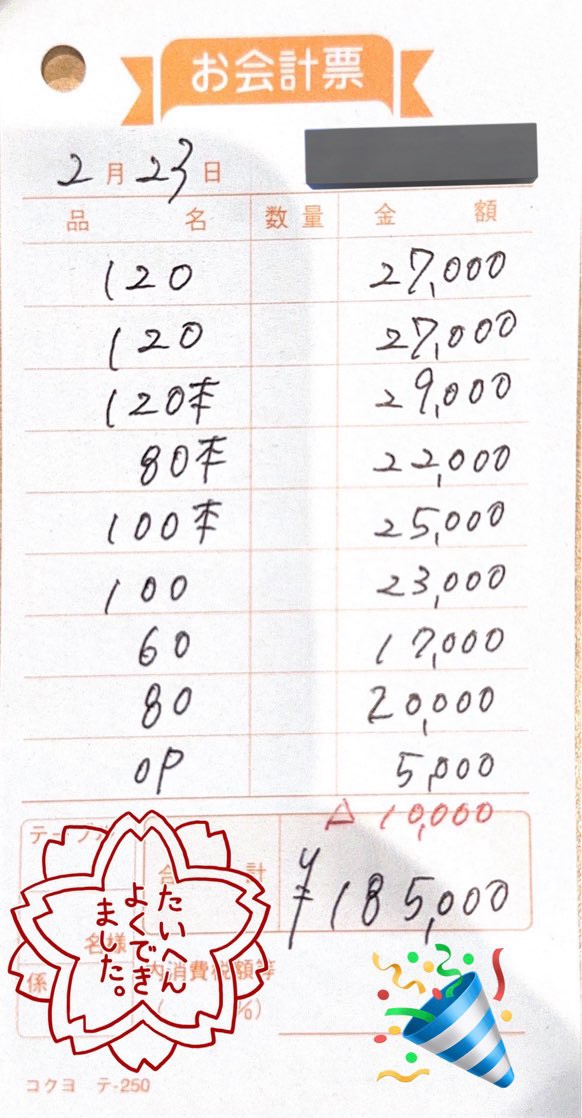 お会計票
2月23日
品名 数量 金額
120 27,000
120 27,000
120本 29,000
80本 22,000
100本 25,000
100 23,000
60 17,000
80 20,000
OP 5,000
△10,000
合計 ¥185,000
名様
係
内消費税額等
たいへん
よくでき
ました。
コクヨ テ-250